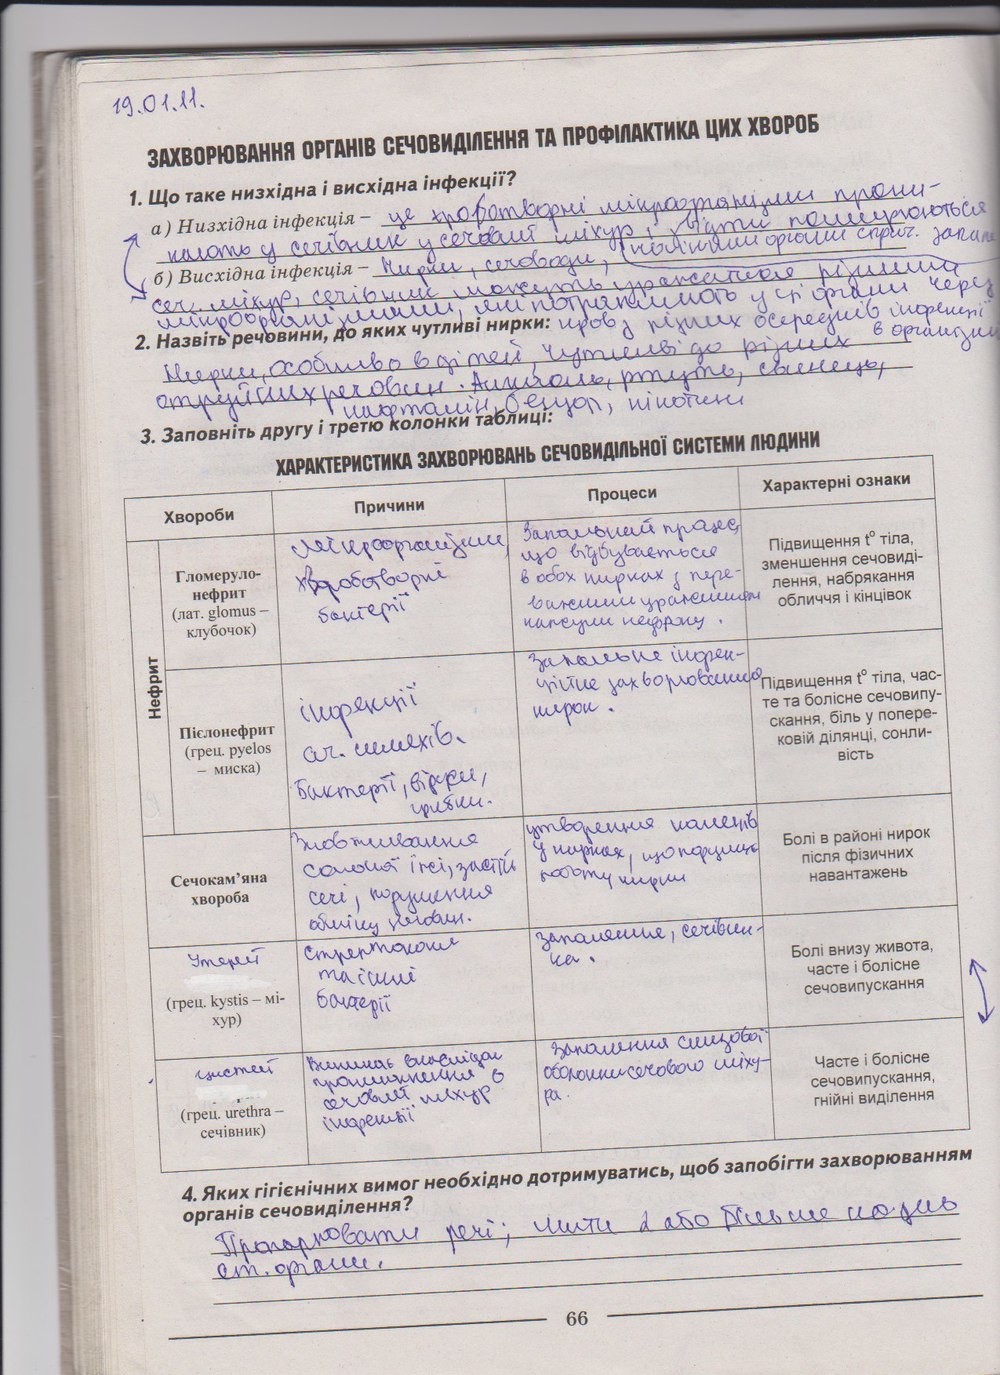 19.01.11.
ЗАХВОРЮВАННЯ ОРГАНІВ СЕЧОВИДІЛЕННЯ ТА ПРОФІЛАКТИКА ЦИХ ХВОРОБ
1. Що таке низхідна і висхідна інфекції?
а) Низхідна інфекція – це хвороботворні мікроорганізми прони-
кають у сечівник у сечовий міхур і звідти поширюються
б) Висхідна інфекція – Нирки, сечоводи, запал
сеч. міхур, сечівник можуть уражатися різними
мікроорганізмами, які потрапляють у ці органи через
2. Назвіть речовини, до яких чутливі нирки: кров з різних осередків інфекції
в організмі
Нирки, особливо в дітей, чутливі до різних
отруйних речовин. Алкоголь, ртуть, свинець,
нафталін, бензол, нікотин
3. Заповніть другу і третю колонки таблиці:
ХАРАКТЕРИСТИКА ЗАХВОРЮВАНЬ СЕЧОВИДІЛЬНОЇ СИСТЕМИ ЛЮДИНИ
Хвороби Причини Процеси Характерні ознаки
Нефрит
Гломеруло-
нефрит
(лат. glomus –
клубочок)
Мікроорганізми,
хвороботворні
бактерії
Запальний процес,
що відбувається
в обох нирках з пере-
важним ураженням
капсули нефрону.
Підвищення t° тіла,
зменшення сечовиді-
лення, набрякання
обличчя і кінцівок
Пієлонефрит
(грец. pyelos
– миска)
інфекції
сч. шляхів.
Бактерії, віруси,
грибки.
Запальне інфек-
ційне захворювання
нирок.
Підвищення t° тіла, час-
те та болісне сечовипу-
скання, біль у попере-
ковій ділянці, сонли-
вість
Сечокам’яна
хвороба
Зловживання
солоної їжі, застій
сечі, порушення
обміну речовин.
утворення каменів
у нирках, що порушує
роботу нирки
Болі в районі нирок
після фізичних
навантажень
Уретрит
(грец. kystis – мі-
хур)
Стрептококи
та інші
бактерії
запалення, сечівни-
ка.
Болі внизу живота,
часте і болісне
сечовипускання
цистит
(грец. urethra –
сечівник)
Виникає внаслідок
проникнення в
сечовий міхур
інфекції
Запалення слизової
оболонки сечового міху-
ра.
Часте і болісне
сечовипускання,
гнійні виділення
4. Яких гігієнічних вимог необхідно дотримуватись, щоб запобігти захворюванням
органів сечовиділення?
речі; мити 2 або більше на день
ст. органи.
66